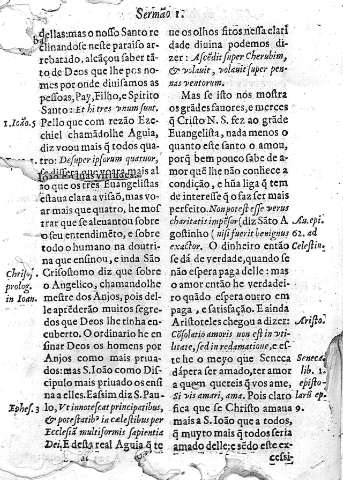 Sermão 1.
dellas: mas o nosso Santo re
clinandose neste paraiso ar-
rebatado, alcãçou saber tã-
to de Deos que lhe pos no-
mes por onde diuisamos as
pessoas, Pay, Filho, e Spirito
Santo: Et hi tres vnum sunt.
1. Ioão. 5 Pello que com rezão Eze-
chiel chamãdolhe Aguia,
diz voou mais q̃ todos qua-
tro: Desuper ipsorum quatuor,
mais al
ao que os tres Euangelistas
estaua clara a visão, mas vo-
ar mais que quatro, he mos-
trar que se aleuantou sobre
o seu entendimẽto, e sobre
todo o humano na doutri
na que ensinou, e inda São
Chriso, Crisostomo diz que sobre
prolog. o Angelico, chamandolhe
in Ioan. mestre dos Anjos, pois del-
le aprẽderão muitos segre-
dos que Deos lhe tinha en-
cuberto. O ordinario he en
sinar Deos os homens por
Anjos como mais priua-
dos: mas S. Ioão como Dis-
cipulo mais priuado os ensi
na a elles. E assim diz S. Pau-
Ephes. 3 lo, Vt innotescat principatibus,
& potestatibꝰ in cælestibus per
Ecclesiã multiformis sapientia
Dei, E desta real Aguia q̃ te
ue os olhos fitos nessa clari
dade diuina podemos di-
zer: Ascẽdit super Cherubim,
& volauit, volauit super pen-
nas ventorum.
Mas se isto nos mostra
os grãdes fauores, e merces
q̃ Cristo N. S. fez ao grãde
Euangelista, nada menos o
quanto este santo o amou,
porq̃ bem pouco sabe de a-
mor quẽ lhe não conhece a
condição, e hũa liga q̃ tem
de interesse q̃ o faz ser mais
perfeito. Non potest esse verus
charitatis impẽsor (diz Sãto A Au. epi
gostinho) nisi fuerit benignus 62. ad
exactor. O dinheiro então Celestiu.
se dá de verdade, quando se
não espera paga delle: mas
o amor então he verdadei-
ro quãdo espera outro em
paga, e satisfação. E ainda
Aristoteles chegou a dizer: Aristo.
Cõsolatio amoris non est in vti-
litate, sed in redamatione, e es-
te he o meyo que Seneca Seneca
dá pera ser amado, ter amor lib. 1.
a quem quereis q̃ vos ame, episto-
Si vis amari, ama. Pois claro larũ ep.
fica que se Christo amaua 9.
mais a S. Ioão que a todos,
q̃ muyto mais q̃ todos seria
amado delle; e sẽdo este ex-
cessi-